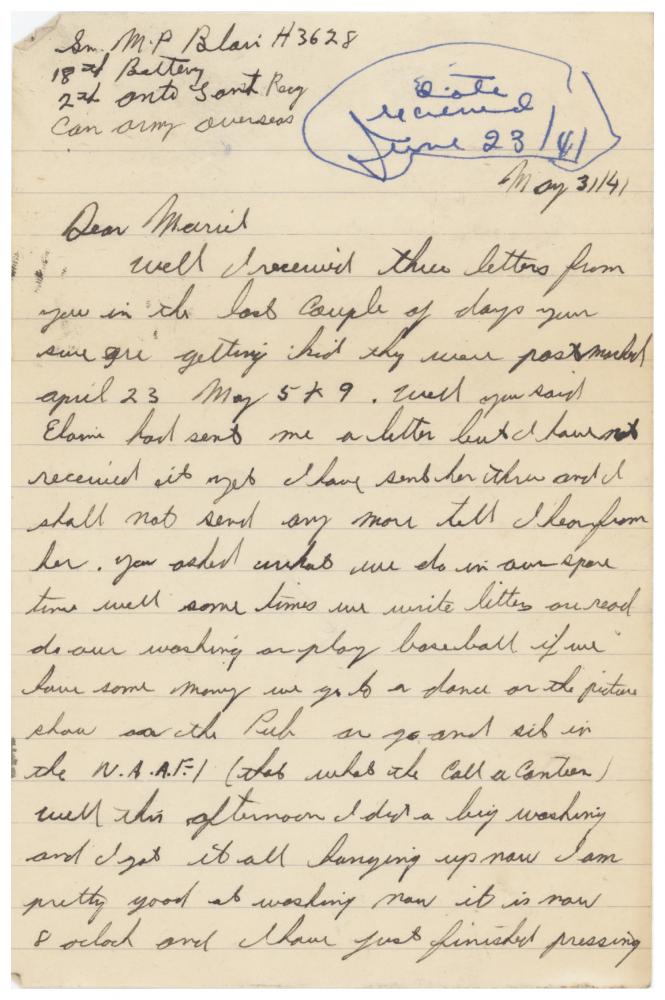 Gnr. M.P Blair H3628
18th Battery
2nd Regt
Can army overseas
Date
recieved
June 23/41
May 31/41
Dear Muriel
Well I received three letters from
you in the last couple of days your
sure are getting kid they were postmarked
april 23 May 5 + 9 . Well you said
Elani had sent me a letter but I have not
received it yet I have sent her three and I
shall not send any more till I hear from
her . you asked what we do in our spare
time well some times we write letters or read
do our washing or play baseball if we
have some money we go to a dance or the picture
show or the Pub or go and sit in
the N.A.A.F.I (that what the call a Canteen)
well this afternoon I did a big washing
and I got it all hanging up now I am
pretty good at washing now it is now
8 oclock and I have just finished pressing